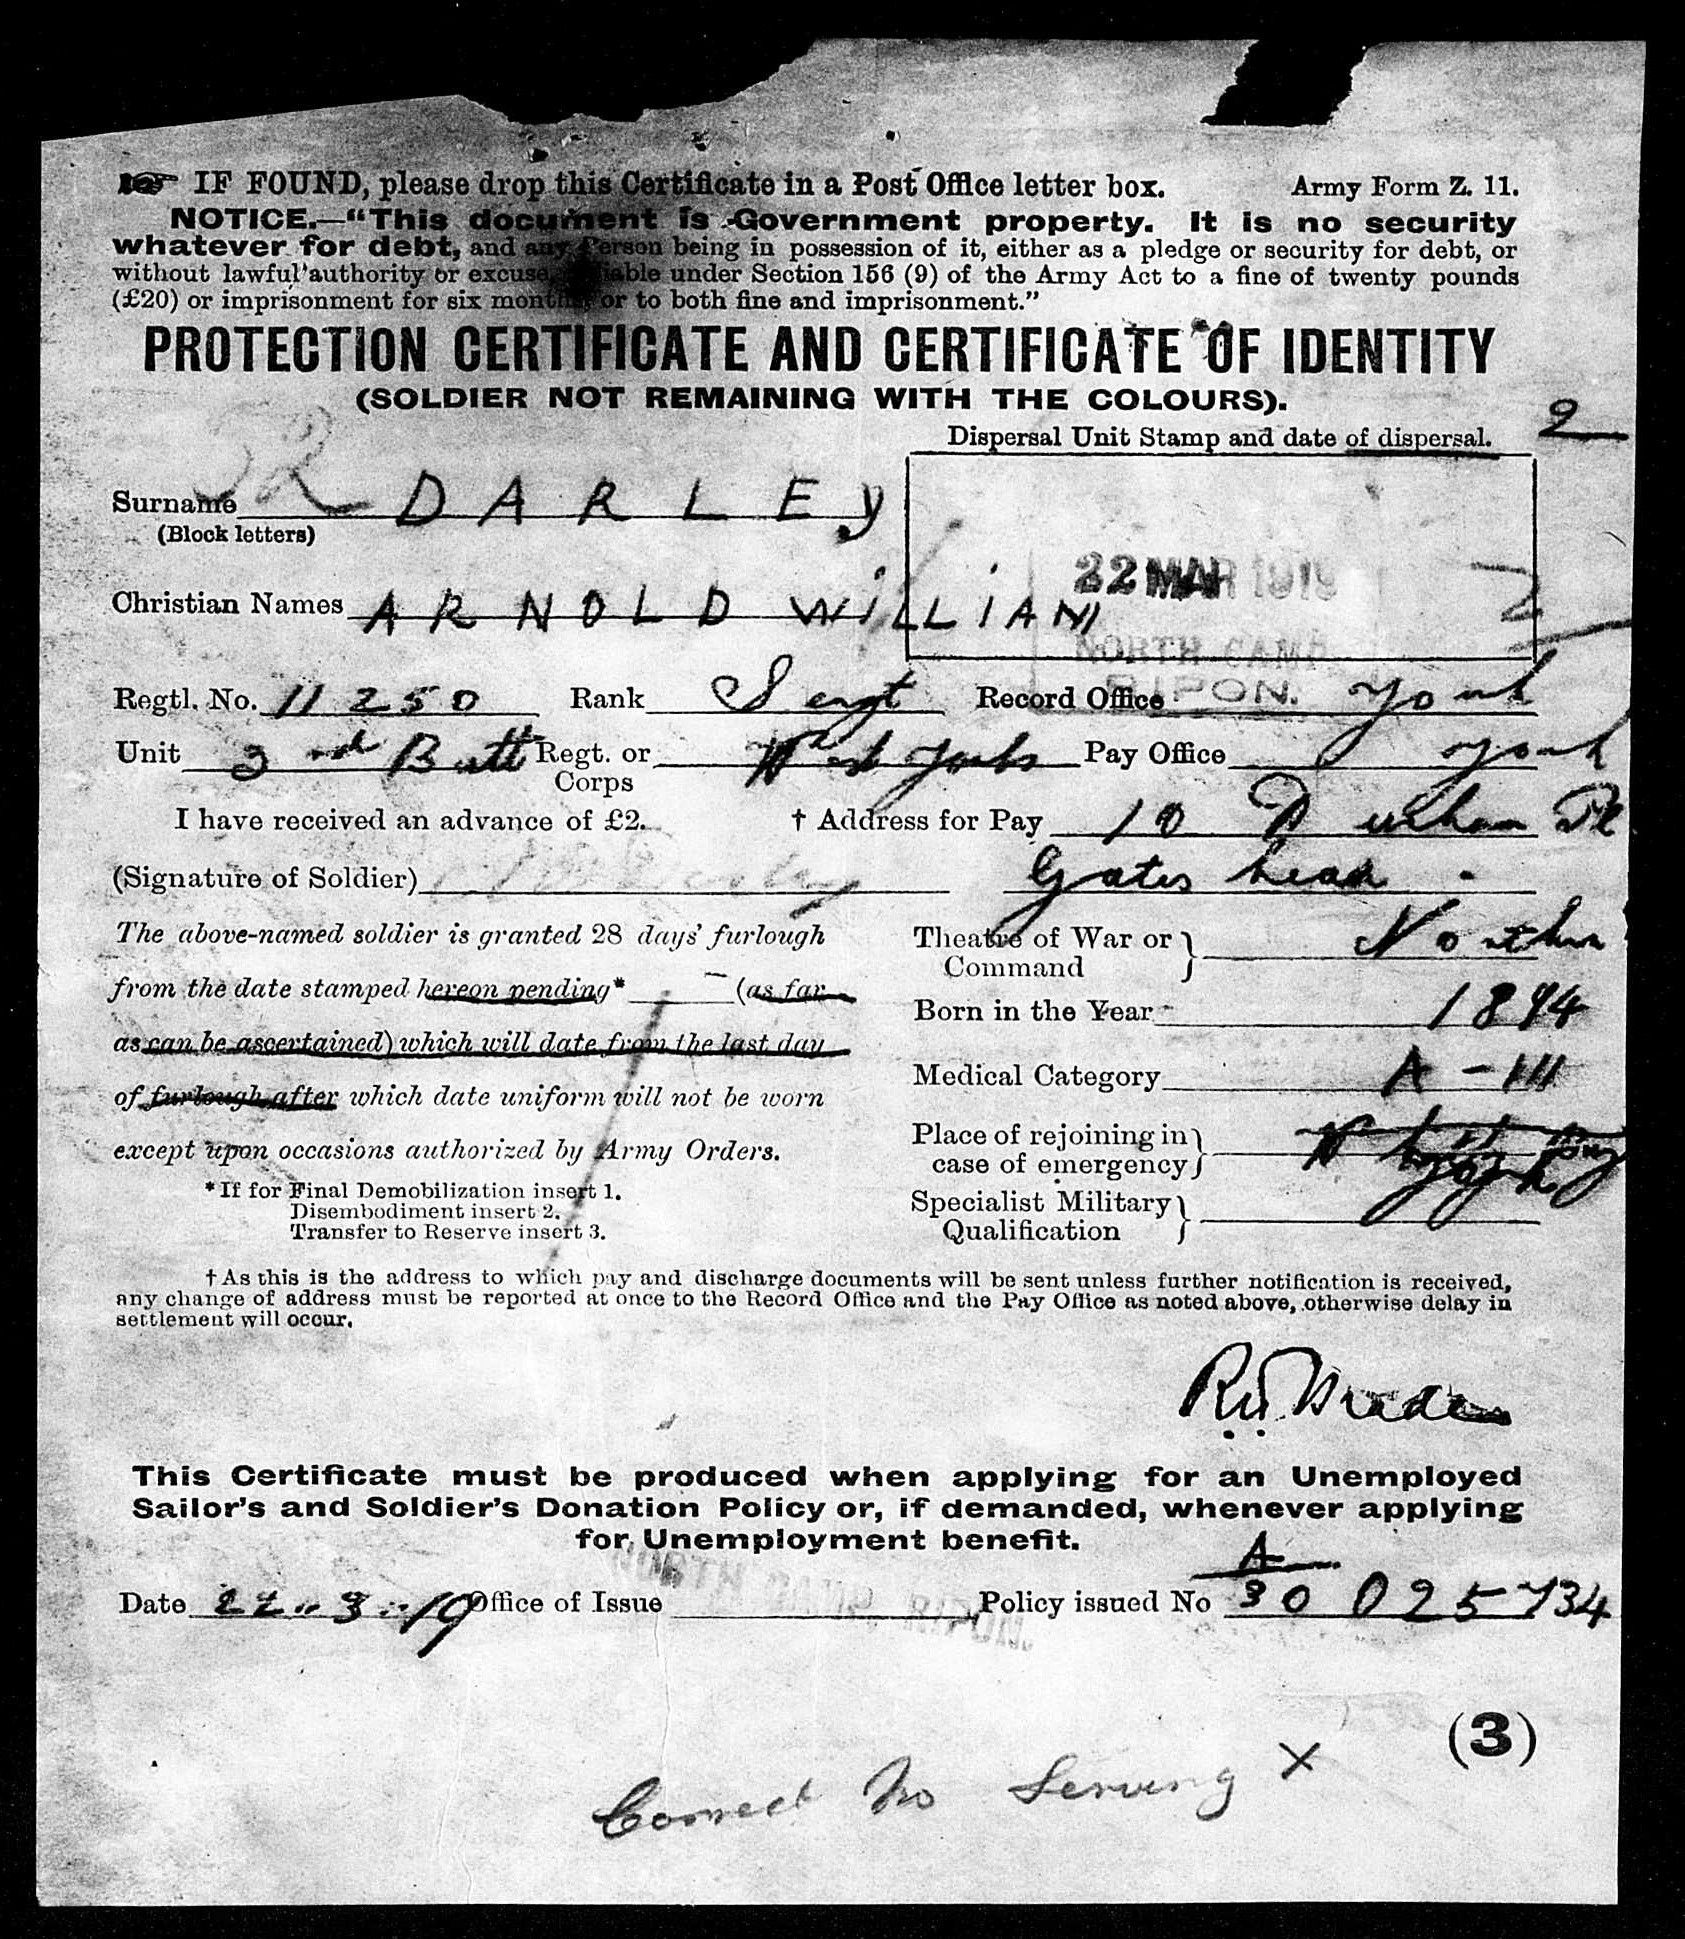 IF FOUND, please drop this Certificate in a Post Office letter box. Army Form Z. 11.
NOTICE.—“This document is Government property. It is no security
whatever for debt, and any Person being in possession of it, either as a pledge or security for debt, or
without lawful authority or excuse, liable under Section 156 (9) of the Army Act to a fine of twenty pounds
(£20) or imprisonment for six months, or to both fine and imprisonment.”
PROTECTION CERTIFICATE AND CERTIFICATE OF IDENTITY
(SOLDIER NOT REMAINING WITH THE COLOURS).
Dispersal Unit Stamp and date of dispersal. 2
Surname DARLEY
(Block letters)
22 MAR 1919
Christian Names ARNOLD WILLIAM
NORTH CAMP
RIPON.
Regtl. No. 11250 Rank Sergt Record Office York
Unit 3rd Batt Regt. or Corps West Yorks Pay Office York
I have received an advance of £2. † Address for Pay 10 Durham Pl
(Signature of Soldier) Gateshead.
The above-named soldier is granted 28 days’ furlough
from the date stamped hereon pending* (as far
as can be ascertained) which will date from the last day
of furlough after which date uniform will not be worn
except upon occasions authorized by Army Orders.
*If for Final Demobilization insert 1.
Disembodiment insert 2.
Transfer to Reserve insert 3.
Theatre of War or Command Northern
Born in the Year 1894
Medical Category A-III
Place of rejoining in case of emergency
Specialist Military Qualification
†As this is the address to which pay and discharge documents will be sent unless further notification is received,
any change of address must be reported at once to the Record Office and the Pay Office as noted above, otherwise delay in
settlement will occur.
This Certificate must be produced when applying for an Unemployed
Sailor’s and Soldier’s Donation Policy or, if demanded, whenever applying
for Unemployment benefit.
A
Date 22..3..19 Office of Issue Policy issued No 30 025734
(3)
Correct No Serving X